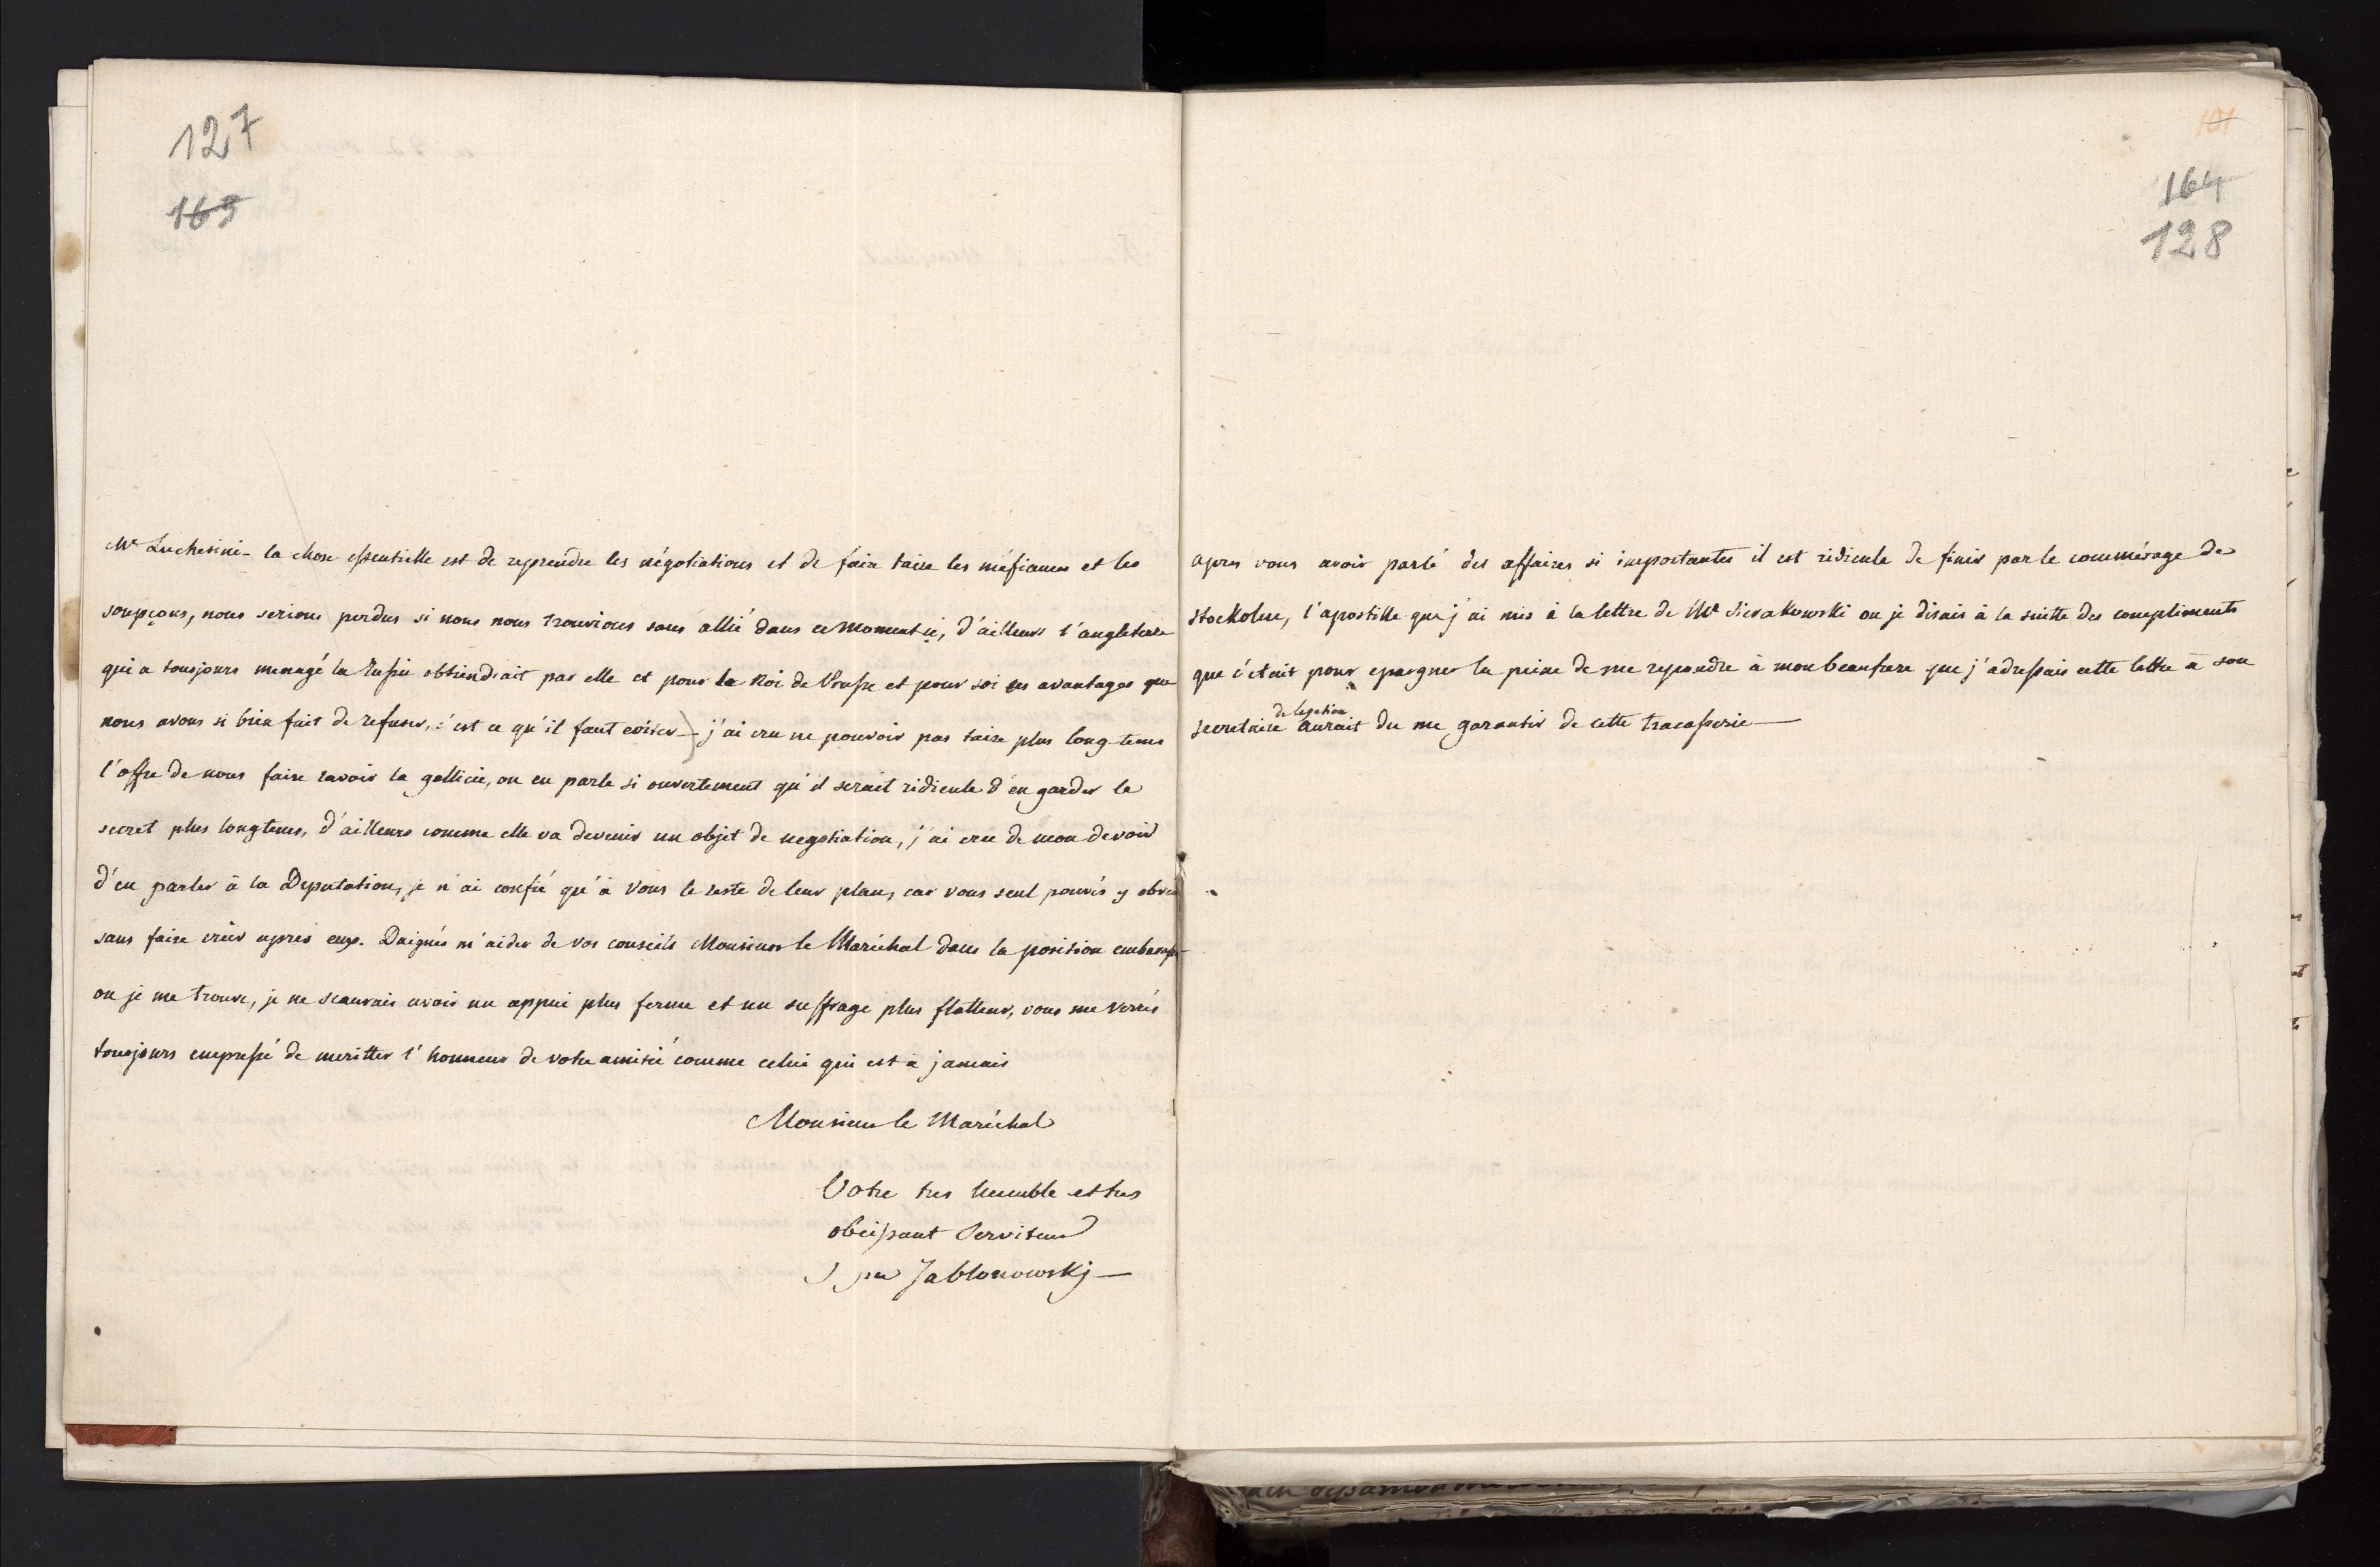 127
163
Mr Luchesini - la chose essentielle est de reprendre les négotiations et de faire taire les méfiances et les
soupçons, nous serions perdus si nous nous trouvions sans allié dans ce moment ci, d'ailleurs l'angleterre
qui a tousjours menagé la Russie obtiendrait par elle et pour le Roi de Prusse et pour soi les avantages que
nous avons si bien fait de refuser, c'est ce qu'il faut eviter -) j'ai cru ne pouvoir pas taire plus long-tems
l'offre de nous faire ravoir la gallicie, on en parle si ouvertement qu'il serait ridicule d'en garder le
secret plus longtems, d'ailleurs comme elle va devenir un objet de negotiation, j'ai cru de mon devoir
d'en parler à la Deputation, je n'ai confié qu'à vous le reste de leur plan, car vous seul pouvés y obvier
sans faire crier après eux. Daignés m'aider de vos conseils Monsieur le Maréchal dans la position
ou je me trouve, je ne scaurais avoir un appui plus ferme et un suffrage plus flatteur, vous me verrés
tousjours empressé de meritter l'honneur de votre amitié comme celui qui est à jamais
Monsieur le Maréchal
Votre tres humble et tres
obeissant Serviteur
Jablonowskj —
101
164
128
apres vous avoir parlé des affaires si importantes il est ridicule de finir par le commérage de
stockolm, l'apostille que j'ai mis à la lettre de Mr Sierakowski ou je disais à la suitte des compliments
que c'etait pour epargner la peine de me repondre à mon beaufrere que j'adressais cette lettre à son
secretaire de legation aurait du me garantir de cette tracasserie —